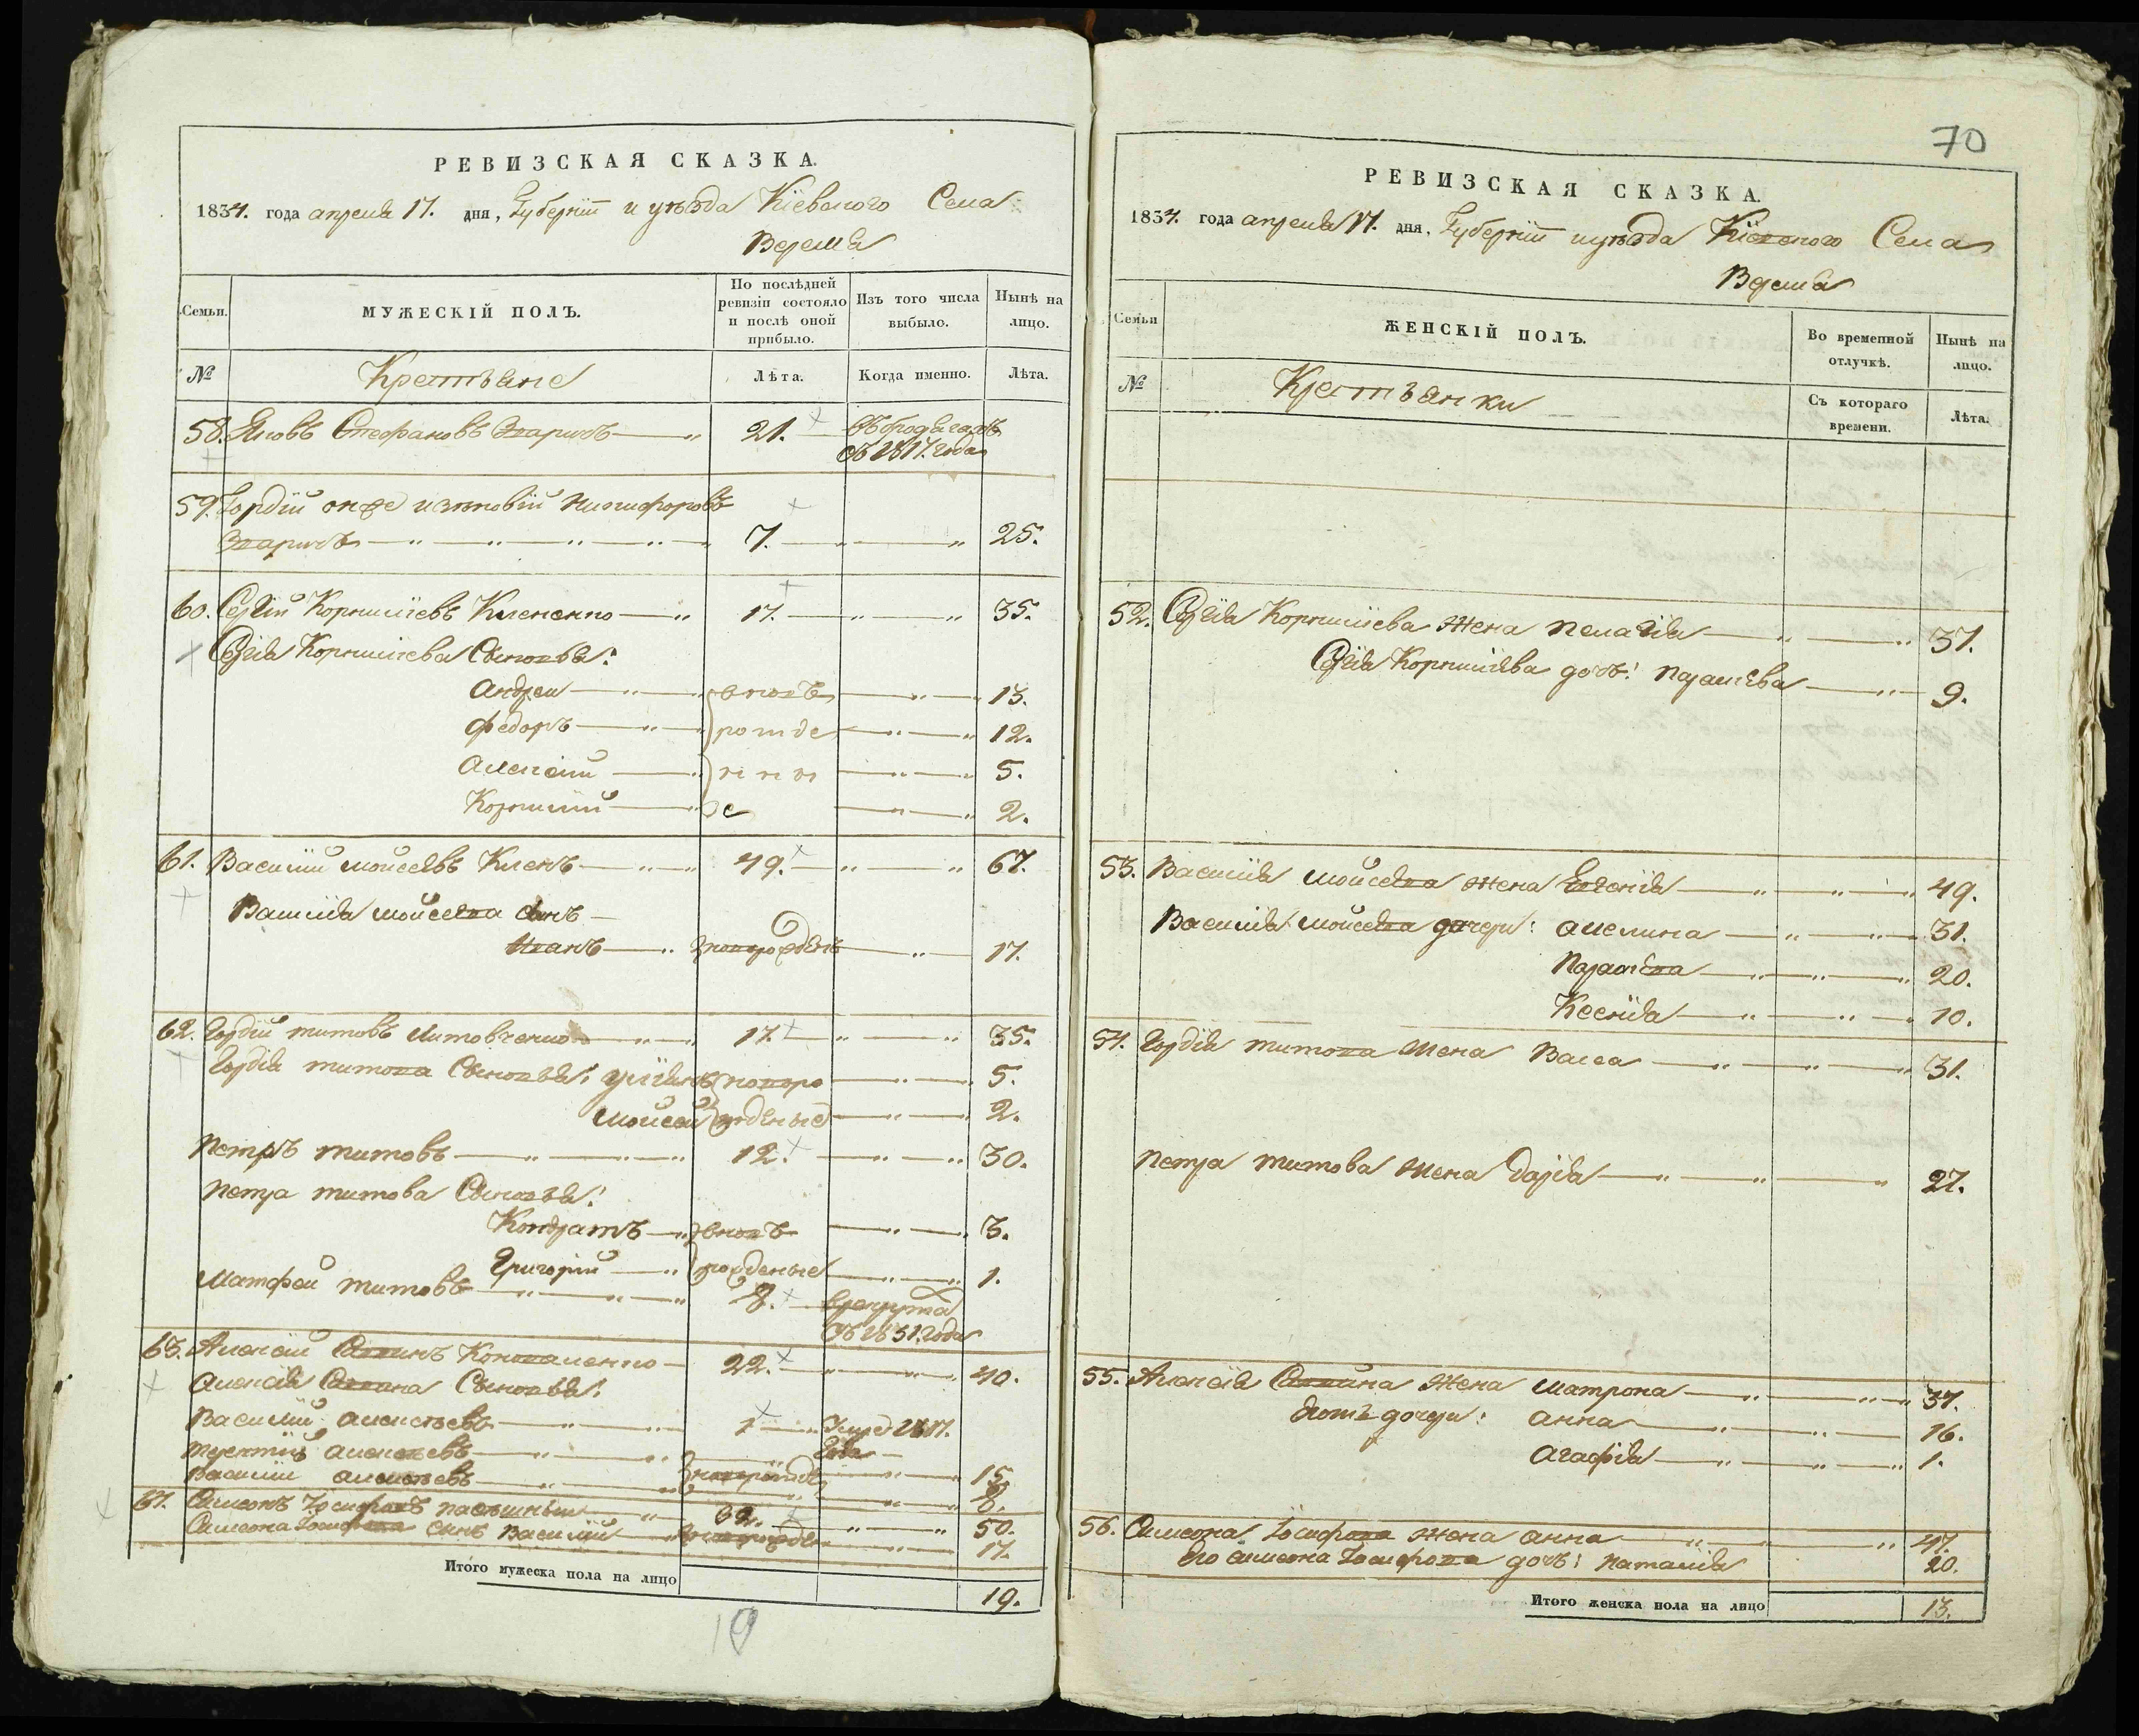 РЕВИЗСКАЯ СКАЗКА.
1834. года апреля 17. дня, Губернїи и уѣзда Кїевского Села
Веремя
Семьи.
МУЖЕСКІЙ ПОЛЪ.
По послѣдней ревизіи состояло и послѣ оной прибыло.
Изъ того числа выбыло.
Нынѣ на лицо.
№
Крестьяне
Лѣта.
Когда именно.
Лѣта.
58. Яковъ Стефановъ 21. Въ бродягахъ
съ 1817. года
59. Гордїй онже и Никифоровъ
7. 25.
60. Сергїй Корнилїевъ Клененко 17. 35.
Сергїя Корнилїева Сыновья:
Андрей вновь 13.
Федоръ рожде 12.
Алексѣй нны 5.
Корнилїй е 2.
61. Василїй Мойсеевъ Кленъ 49. 67.
Василїя Мойсеева сынъ
Иванъ новорожденъ 17.
62. Гордїй Титовъ 17. 35.
Гордїя Титова Сыновья: Улїянъ новоро 5.
Мойсей жденные 2.
Петръ Титовъ 12. 30.
Петра Титова Сыновья:
Кондратъ вновь 3.
Григорїй рожденные 1.
Матфей Титовъ 8. в рекрута
съ 1831. года
63. Алексѣй Саввинъ Коноваленко 22. 40.
Алексѣя Саввина Сыновья:
Василїй Алексѣевъ 1 Умре 1817.
года
Терентїй Алексѣевъ 15.
Василїй Алексѣевъ 8.
64. Симеонъ Іосифовъ 32. 50.
Симеона Іосифова сынъ Василїй 17.
Итого мужеска пола на лицо 19.
19
70
РЕВИЗСКАЯ СКАЗКА.
1834. года апреля 17. дня, Губернїи и уѣзда Кїевского Села
Веремя
Семьи
ЖЕНСКІЙ ПОЛЪ.
Во временной отлучкѣ.
Нынѣ на лицо.
№
Крестьянки
Съ котораго времени.
Лѣта.
52. Сергїя Корнилїева жена Пелагїя 31.
Сергїя Корнилїева дочь: Параскева 9.
53. Василїя Мойсеева жена Евгенїя 49.
Василїя Мойсеева дочери: Акелина 31.
Параскева 20.
Ксенїя 10.
54. Гордїя Титова жена Васса 31.
Петра Титова жена Дарїя 27.
55. Алексѣя Саввина жена Матрона 37.
дочери: Анна 16.
Агафїя 1.
56. Симеона Іосифова жена Анна 47.
Его Симеона Іосифова дочь: Наталїя 20.
Итого женска пола на лицо 13.